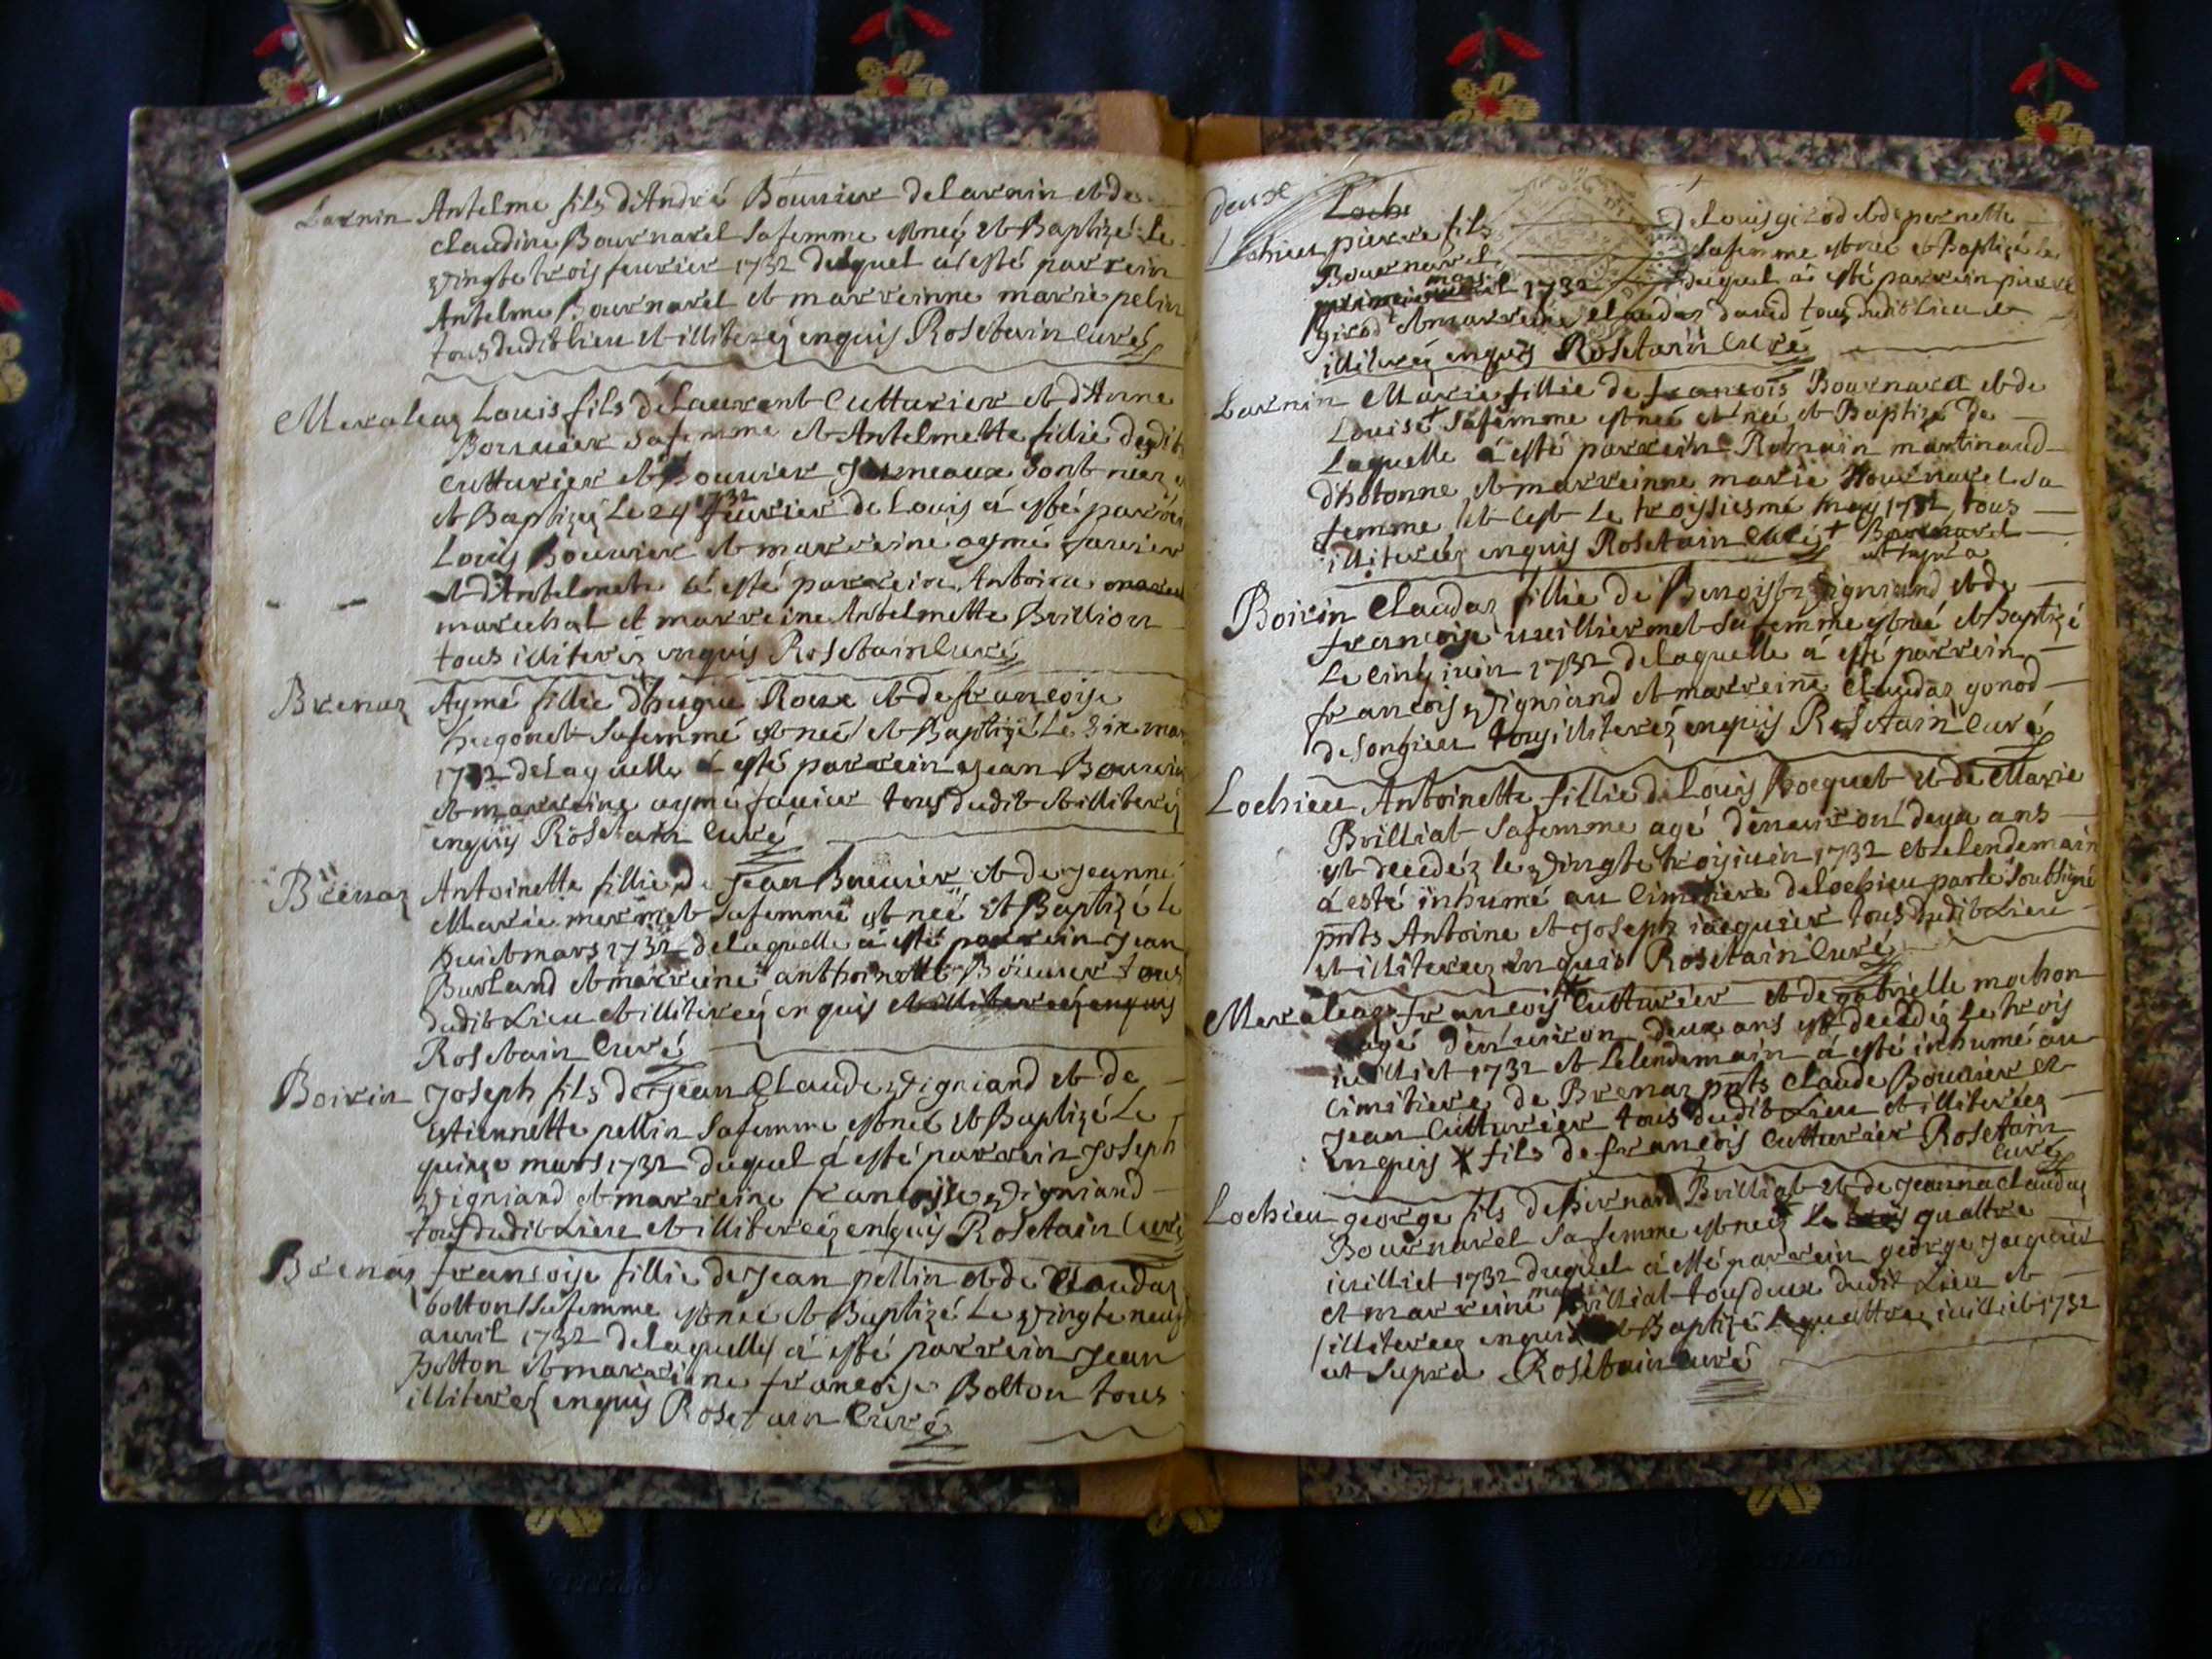 Larnin Antelme fils d'André Bouvier de Larnin et de
claudine Bournarel sa femme est neé et Baptizé le
vingte trois feurier 1732 duquel a esté parrein
Antelme Bournarel et marreinne marie pelin
tous dudit lieu et illiterez enquis Rosetain Curé
Meraleaz Louis fils de Laurent Cutturier et d'Anne
Bouuier sa femme et Antelmette fillie desdits
Cutturier et Bouuier Jumeaux sont neez
et Baptizez le 24 feurier 1732 de Louis á esté parrein
Louis Bouuier et marreine aymé fauier
et d'Antelmete á esté parrein Antoine
marechal et marreine Antelmette Brillion
tous illiterez enquis Rosetain Curé
Brenaz Aymé fillie d'hugue Roux et de francoise
hugonet sa femmé est neé et Baptizé le six mars
1732 de laquelle á esté parrein jean Bouuier
et marreine aymé fauier tous dudit et illiterez
enquis Rosetain Curé
Brenaz Antoinette fillie de Jean Bouuier et de Jeanne
Marie mermet sa femme est neé et Baptizé le
huit mars 1732 de laquelle á esté parrein Jean
Burland et marreine anthoinette Bouuier tous
dudit Lieu et illiterez enquis et illiterez enquis
Rosetain Curé
Boirin Joseph fils de Jean Claude vigniand et de
Estiennette pellin sa femme est neé et Baptizé le
quinze mars 1732 duquel á esté parrein Joseph
vigniand et marreine francoise vigniand
tous dudit Lieu et illiterez enquis Rosetain Curé
Brenaz francoise fillie de Jean pellin et de Claudaz
bolton sa femme est neé et Baptizé le vingte neuf
auril 1732 de laquelle á esté parrein Jean
bolton et marreine francoise Bolton tous
illiterez enquis Rosetain Curé
deux
Loch
Lochieu pierre fils de Louis girod et de pernette
Bournarel sa femme est neé et Baptizé le
mars 1732 duquel á esté parrein pierre
girod et marreine Claudaz dauid tous dudit Lieu et
illiterez enquis Rosetain Curé
Larnin Marie fillie de francois Bournarel et de
Louise + sa femme est neé et neé et Baptizé de
Laquelle á esté parrein Romain martinaud
d'hotonne et marreinne marie Bournarel sa
femme et c'est le troisiesme may 1732 tous
illiterez enquis Rosetain Curé + Bournarel
ut supra
Boirin Claudaz fillie de Benoist vigniand et de
francoise iuillermet sa femme est neé et Baptizé
le cinq iuin 1732 de laquelle á esté parrein
francois vigniand et marreine Claudaz gonod
de songieu tous illiterez enquis Rosetain Curé
Lochieu Antoinette fillie de Louis Bocquet et de Marie
Brilliat sa femme agé d'enuiron deux ans
est decedéz le vingte trois iuin 1732 et le lendemain
á esté inhumé au Cimitiere de Lochieu par le soubsigné
pnts Antoine et Joseph iacquier tous dudit Lieu
et illiterez enquis Rosetain Curé
Meraleaz francois + Cutturier et de gabrielle mochon
agé d'enuiron deux ans est decedéz le trois
iuilliet 1732 et le lendemain á esté inhumé au
cimitiere de Brenaz pnts Claude Bouuier et
Jean Cutturier tous dudit Lieu et illiterez
enquis + fils de francois Cutturier Rosetain
Curé
Lochieu george fils de Bernard Brilliat et de Jeanna Claudaz
Bournarel sa femme est neéz le quattre
iuilliet 1732 duquel á esté parrein george Jacquier
et marreine marie Brilliat tous deux dudit Lieu et
illiterez enquis et Baptizé le quattre iuilliet 1732
ut supra Rosetain curé